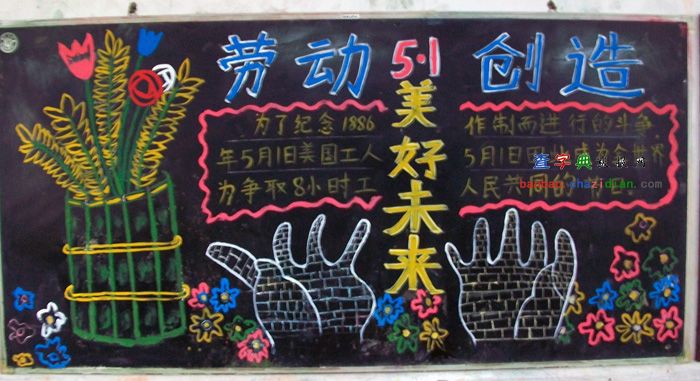 劳动 5·1 创造
美好未来
为了纪念1886
年5月1日美国工人
为争取8小时工
作制而进行的斗争
5月1日 成为全世界
人民共同的
查字典
chazidian.com